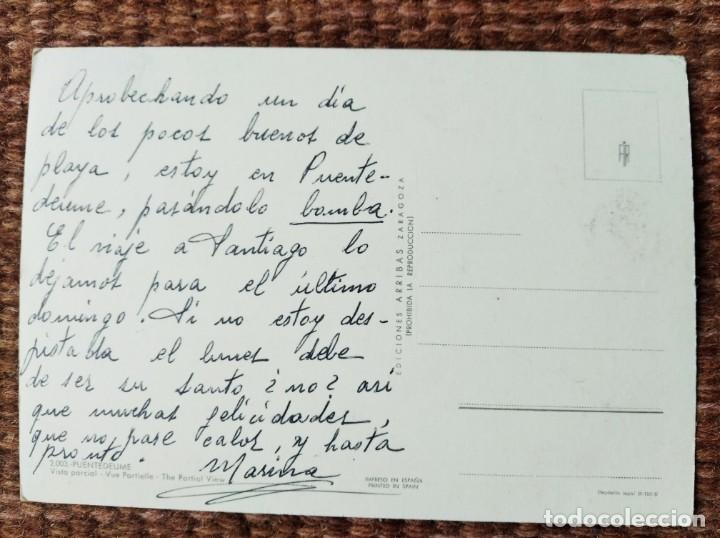 Aprobechando un día
de los pocos buenos de
playa, estoy en Puente-
deume, pasándolo bomba.
El viaje a Santiago lo
dejamos para el último
domingo. Si no estoy des-
pistabla el lunes debe
de ser su santo ¿no? así
que muchas felicidades,
que no pase calor, y hasta
pronto. Marina
2.003.-PUENTEDEUME
Vista parcial - Vue Partielle - The Partial View
IMPRESO EN ESPAÑA
PRINTED IN SPAIN
EDICIONES ARRIBAS ZARAGOZA
(PROHIBIDA LA REPRODUCCION)
todocoleccion.net